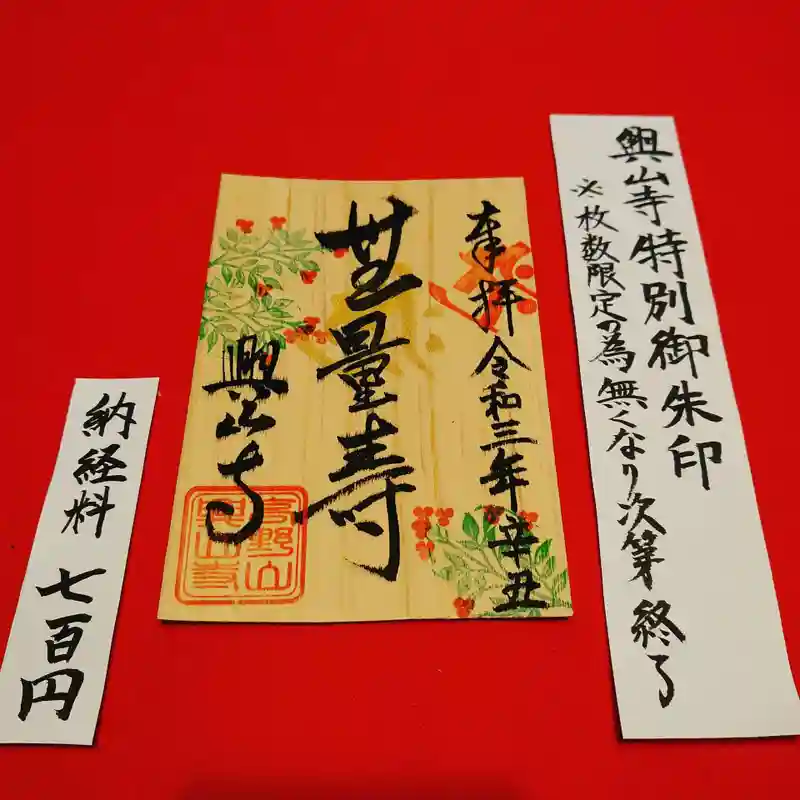 興山寺特別御朱印
※枚数限定の為無くなり次第終了
奉拝 令和三年辛丑
無量寿
興山寺
高野山
興山寺
納経料 七百円